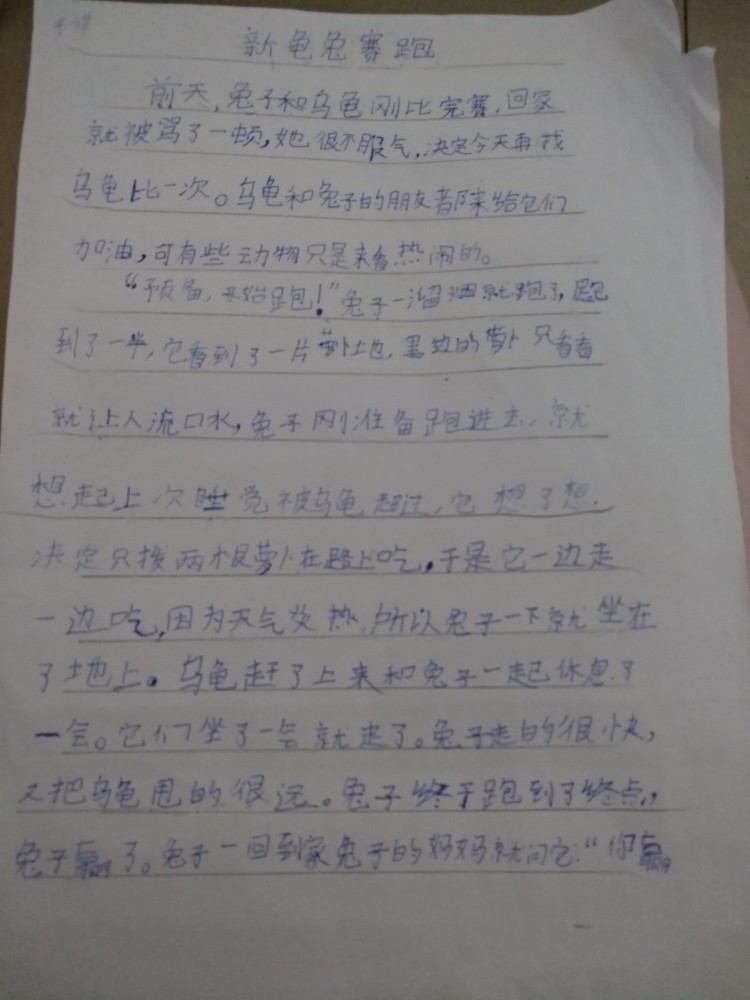 新龟兔赛跑
前天,兔子和乌龟刚比完赛,回家
就被骂了一顿,她很不服气,决定今天再找
乌龟比一次。乌龟和兔子的朋友都来给它们
加油,可有些动物只是来看热闹的。
“预备,开始跑!”兔子一溜烟就跑了,跑
到了一半,它看到了一片萝卜地,的萝卜只看看
就让人流口水,兔子刚准备跑进去,就
想起上次睡觉被乌龟超过,它想了想,
决定只拨两根萝卜在路上吃,于是它一边走
一边吃,因为天气炎热,所以兔子一下就坐在
了地上。乌龟赶了上来和兔子一起休息了
一会。它们坐了一会就走了。兔子走的很快,
又把乌龟甩的很远。兔子终于跑到了终点,
兔子赢了。兔子一回到家兔子的妈妈就问它:“你赢